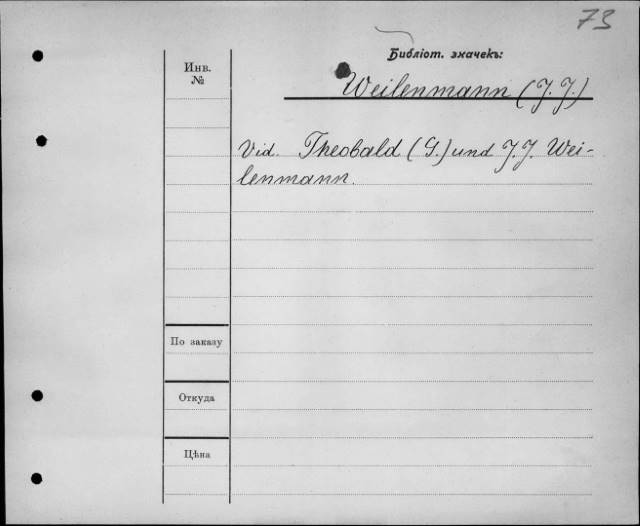 73
Библіот. значекъ:
Инв.
№
Weilenmann (J. J.)
Vid. Theobald (G.) und J. J. Wei-
lenmann.
По заказу
Откуда
Цѣна